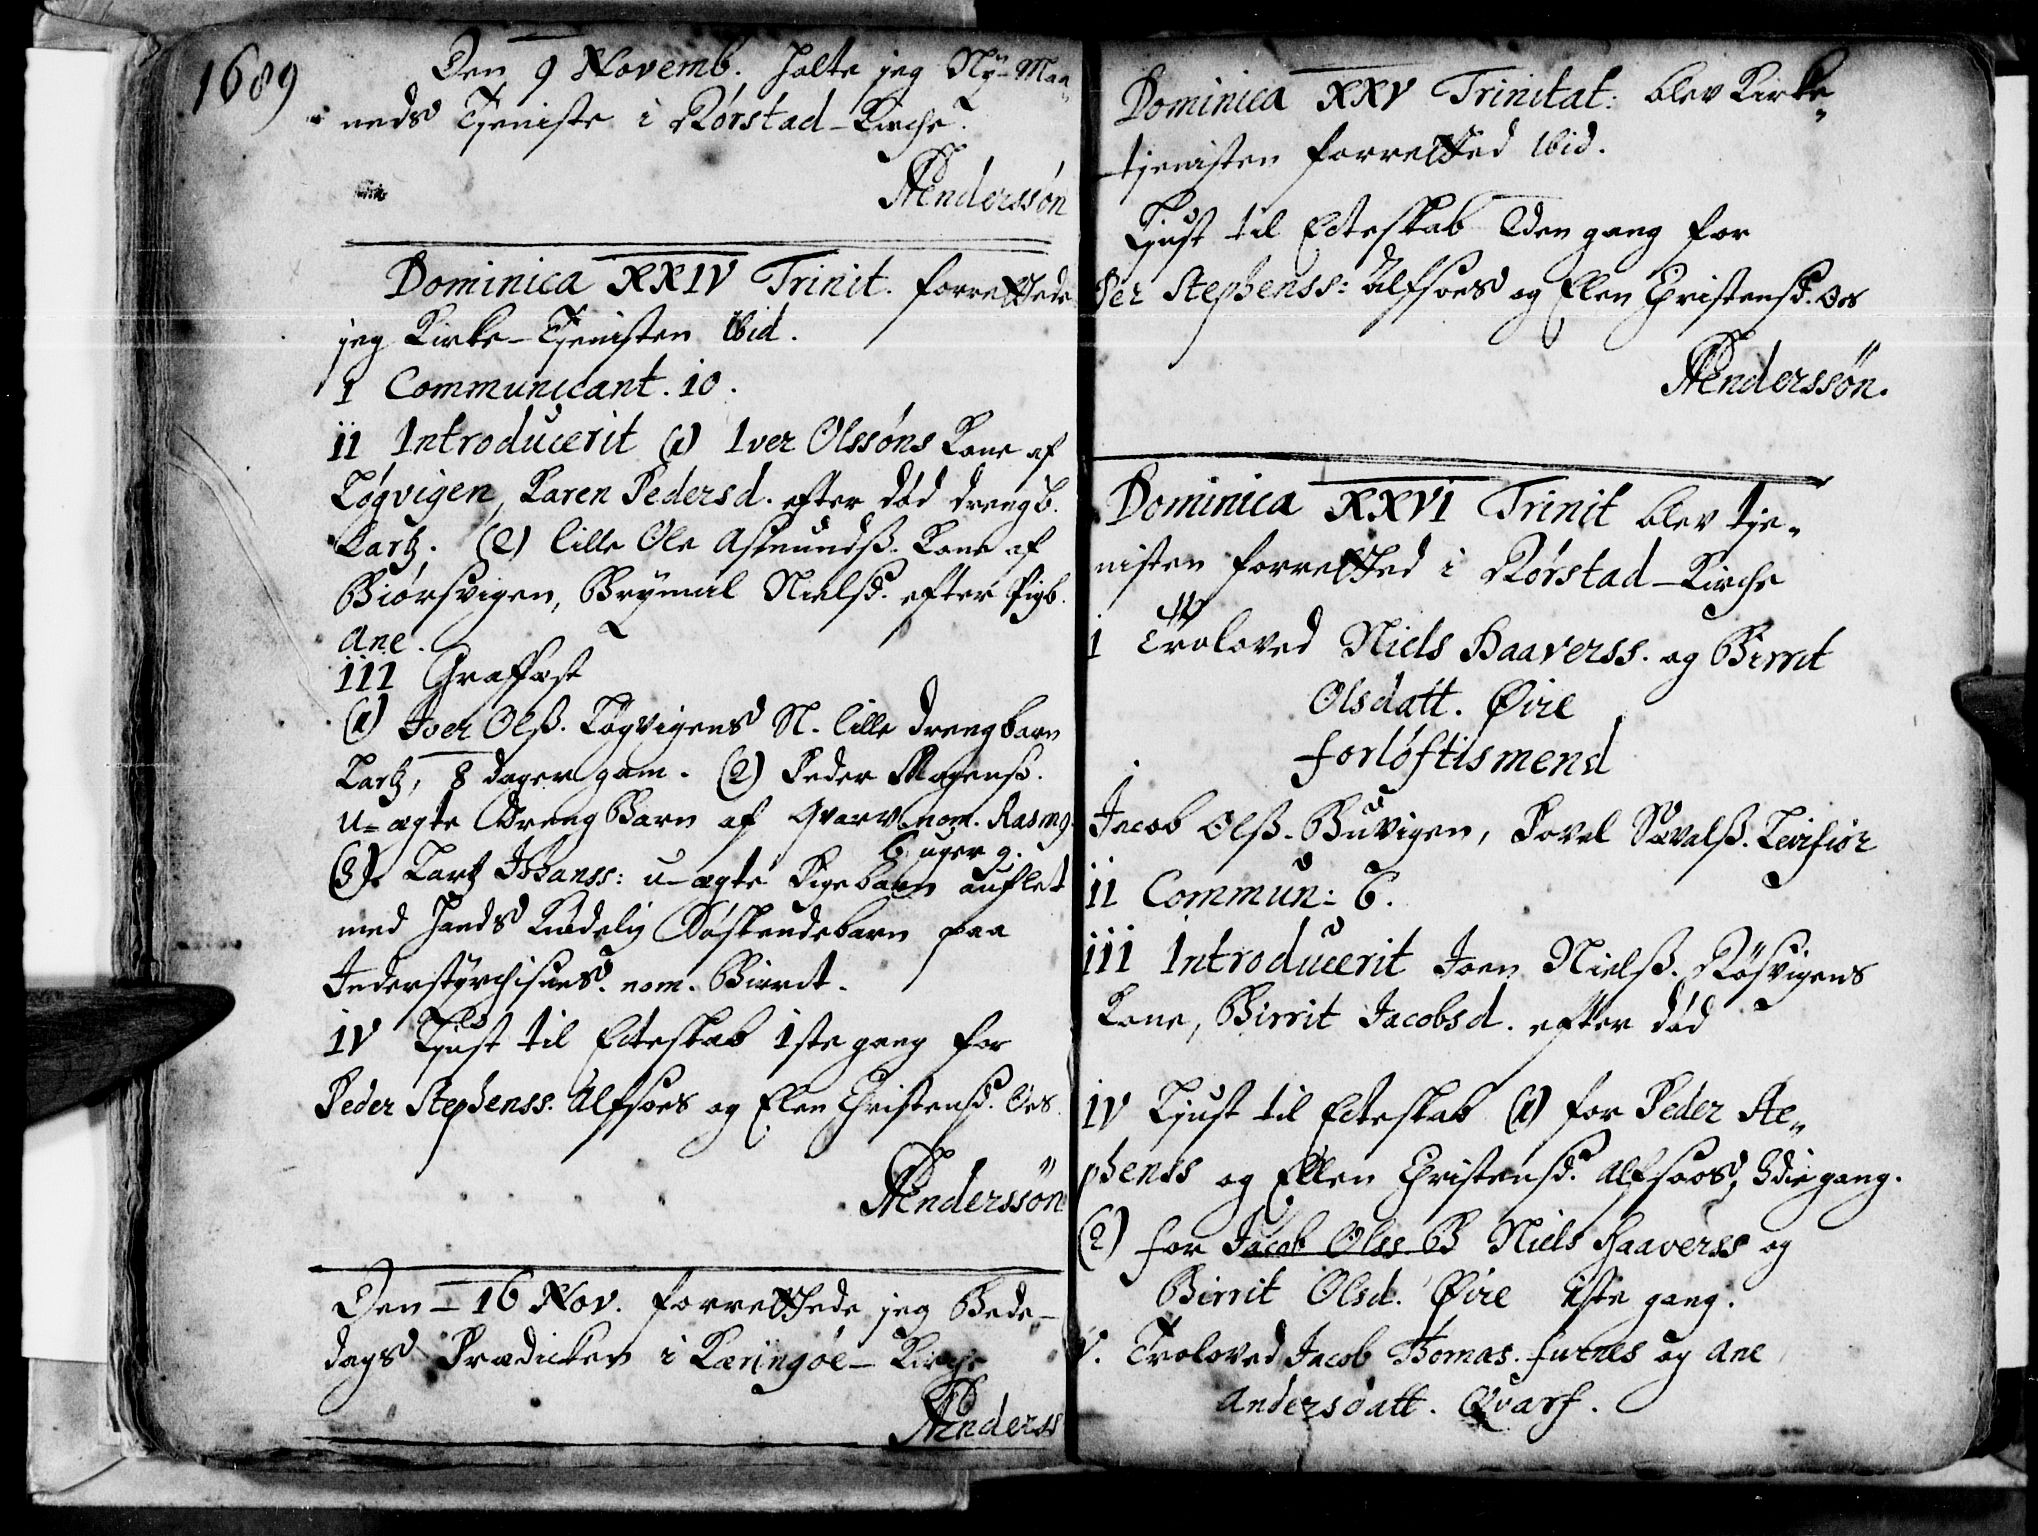 1689
Den 9 Novemb. holte jeg Ny-Maa„
neds Tjeniste i Rörstad-Kirche.
PAnderssön
Dominica XXIV Trinit. forrettede
jeg Kirke-Tjenisten Ibid.
I Communicant. 10.
II Introducerit (1) Iver Olssöns Kone af
Løgvigen, Karen Pedersd. efter död drengb.
Lartz. (2) lille Ole Asmundß. Kone af
Biörsvigen, Brynnil Nielsd. efter Pigb.
Ane.
III Graffæst
(1) Iver Olß. Løgvigens N. lille drengbarn
Lartz, 8 dager gam. (2) Peder Mogensß.
u-ægte Dreng Barn af Qvarv nom. Rasmg
6 uger g.
(3). Lartz Johanss: u-ægte Pigebarn auflet
med hands Kiödelig Söskendebarn paa
Inderstyrchisnes. nom. Birrit.
IV Liust til Ecteskab 1ste gang for
Peder Stephenss. Alfsoes og Elen Christensd. Oes.
PAnderssön
Den 16 Nov. forrettede jeg Bede-
dags Prædicken i Kæringöe-Kirche
PAnderss
Dominica XXV Trinitat: blev Kirke„
tjenisten forretted Ibid.
Liust til Ecteskab 2den gang for
Per Stephenss: Alfsoes og Elen Christensd. Oes
PAnderssön.
Dominica XXVI Trinit blev tje„
nisten forretted i Rörstad-Kirche
I Troloved Niels Haaverss. og Birrit
Olsdatt. Øire
forlöftismend
Jacob Olß. Buvigen, Povel Siovalß. Leirfior
II Commun: 6.
III Introducerit Joen Nielß. Rösvigens
Kone, Birrit Jacobsd. efter död
IV Liust til Ecteskab (1) for Peder Ste„
phenss og Ellen Christensd. Alfsoes, 3die gang.
(2) for Jacob Olss B Niels Haaverss og
Birrit Olsd. Øire 1ste gang.
V. Troloved Jacob Thomas. furnes og Ane
Andersdatt. Qvarf.